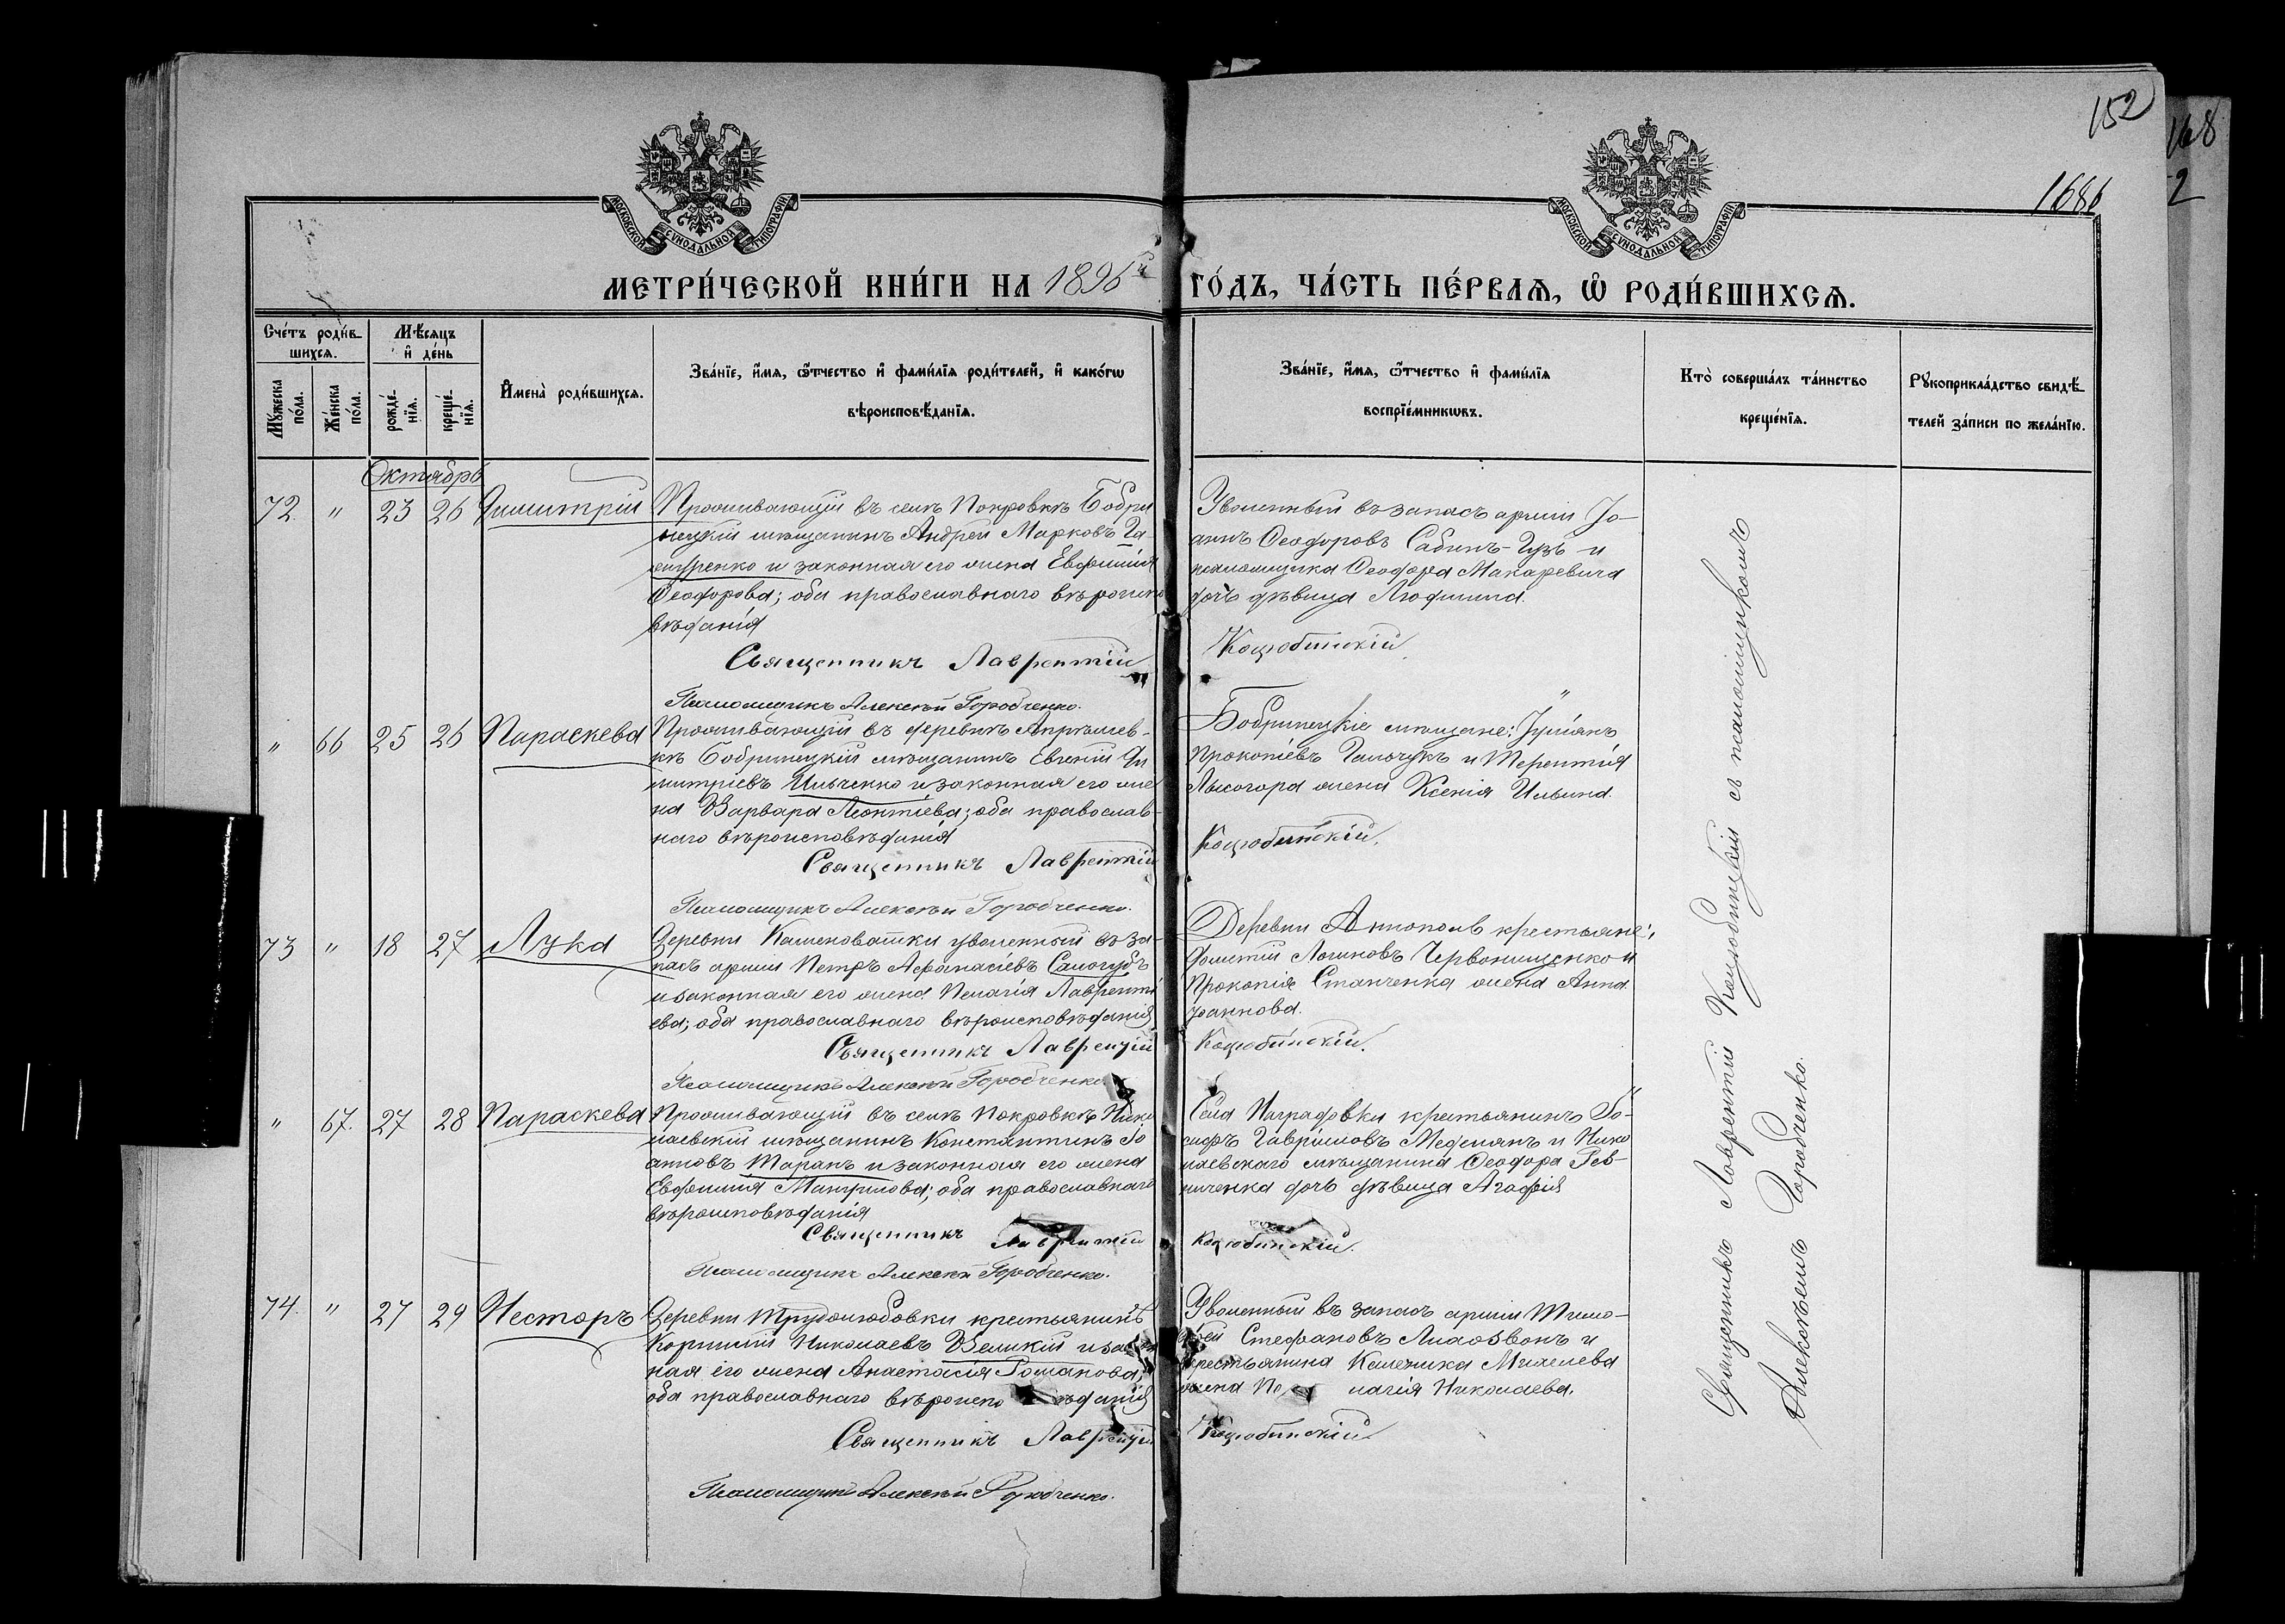 152
168
168б
2
МОСКОВСКОЙ СѴНОДАЛЬНОЙ ТИПОГРАФІИ
МОСКОВСКОЙ СѴНОДАЛЬНОЙ ТИПОГРАФІИ
МЕТРИ́ЧЕСКОЙ КНИ́ГИ НА 1896й ГО́ДЪ, ЧА́СТЬ ПЕ́РВАѦ, Ѡ҆ РОДИ́ВШИХСѦ.
Сче́тъ роди́в-
шихсѧ.
Мꙋ́жеска по́ла.
Же́нска по́ла.
Мѣ́сѧцъ
и҆ де́нь
рожде́-
нїѧ.
креще́-
нїѧ.
И҆мена̀ роди́вшихсѧ.
Зва́нїе, и҆́мѧ, ѻ҆́тчество и҆ фами́лїѧ роди́телей, и҆ како́гѡ
вѣроисповѣ́данїѧ.
Зва́нїе, и҆́мѧ, ѻ҆́тчество и҆ фами́лїѧ
воспрїе́мникѡвъ.
Кто̀ соверша́лъ та́инство
креще́нїѧ.
Рꙋкоприкла́дство свидѣ́-
телей за́писи по жела́нїю.
Октябрь
72 " 23 26 Димитрій
Проживающій въ селѣ Покровкѣ Бобри
нецкій мѣщанинъ Андрей Марковъ
и законная его жена Евфимія
Ѳеодорова; оба православнаго вѣроиспо
вѣданія
Священникъ Лаврентій Коцюбинскій
Псаломщикъ Алексѣй Горобченко.
Уволенный въ запасъ арміи Іо-
аннъ Ѳеодоровъ Сабинъ-Гузъ и
псаломщика Ѳеодора Макаревича
дочь дѣвица Людмила.
" 66 25 26 Параскева
Проживающій въ деревнѣ Апрѣлев-
кѣ Бобринецкій мѣщанинъ Евгеній Ди
митріевъ Ильченко и законная его же
на Варвара Леонтіева; оба православ-
наго вѣроисповѣданія
Священникъ Лаврентій Коцюбинскій.
Псаломщикъ Алексѣй Горобченко.
Бобринецкіе мѣщане: Іуліанъ
Прокопіевъ Гальчукъ и Терентія
Лысогора жена Ксенія Ильина.
73 " 18 27 Лука
Деревни Каменоватки уволенный въ за-
пасъ арміи Петръ Аѳанасіевъ Самогубъ
и законная его жена Пелагія Лавренті
ева; оба православнаго вѣроисповѣданія
Священникъ Лаврентій Коцюбинскій.
Псаломщикъ Алексѣй Горобченко.
Деревни Аннополь крестьяне:
Дометій Логиновъ Червонищенко и
Прокопія Станченка жена Анна
Іоаннова.
" 67. 27 28 Параскева
Проживающій въ селѣ Покровкѣ Нико
лаевскій мѣщанинъ Константинъ Іо
анновъ Таранъ и законная его жена
Евфимія Митрилова; оба православнаго
вѣроисповѣданія
Священникъ Лаврентій Коцюбинскій.
Псаломщикъ Алексѣй Горобченко.
Села Играфовки крестьянинъ Іо-
сифъ Гавріиловъ Меделянъ и Нико
лаевскаго мѣщанина Ѳеодора Рев-
ниченка дочь дѣвица Агафія
74. " 27 29 Несторъ
Деревни Трудолюбовки крестьянинъ
Корнилій Николаевъ Великій и закон
ная его жена Анастасія Романова;
оба православнаго вѣроиспо вѣданія
Священникъ Лаврентій Коцюбинскій
Псаломщикъ Алексѣй Горобченко.
Уволенный въ запасъ арміи Тимо-
ѳей Стефановъ Лиаозвонъ и
крестьянина Калиника Михалева
жена Пе лагія Николаева.
Священникъ Лаврентій Коцюбинскій съ псаломщикомъ
Алексѣемъ Горобченко.